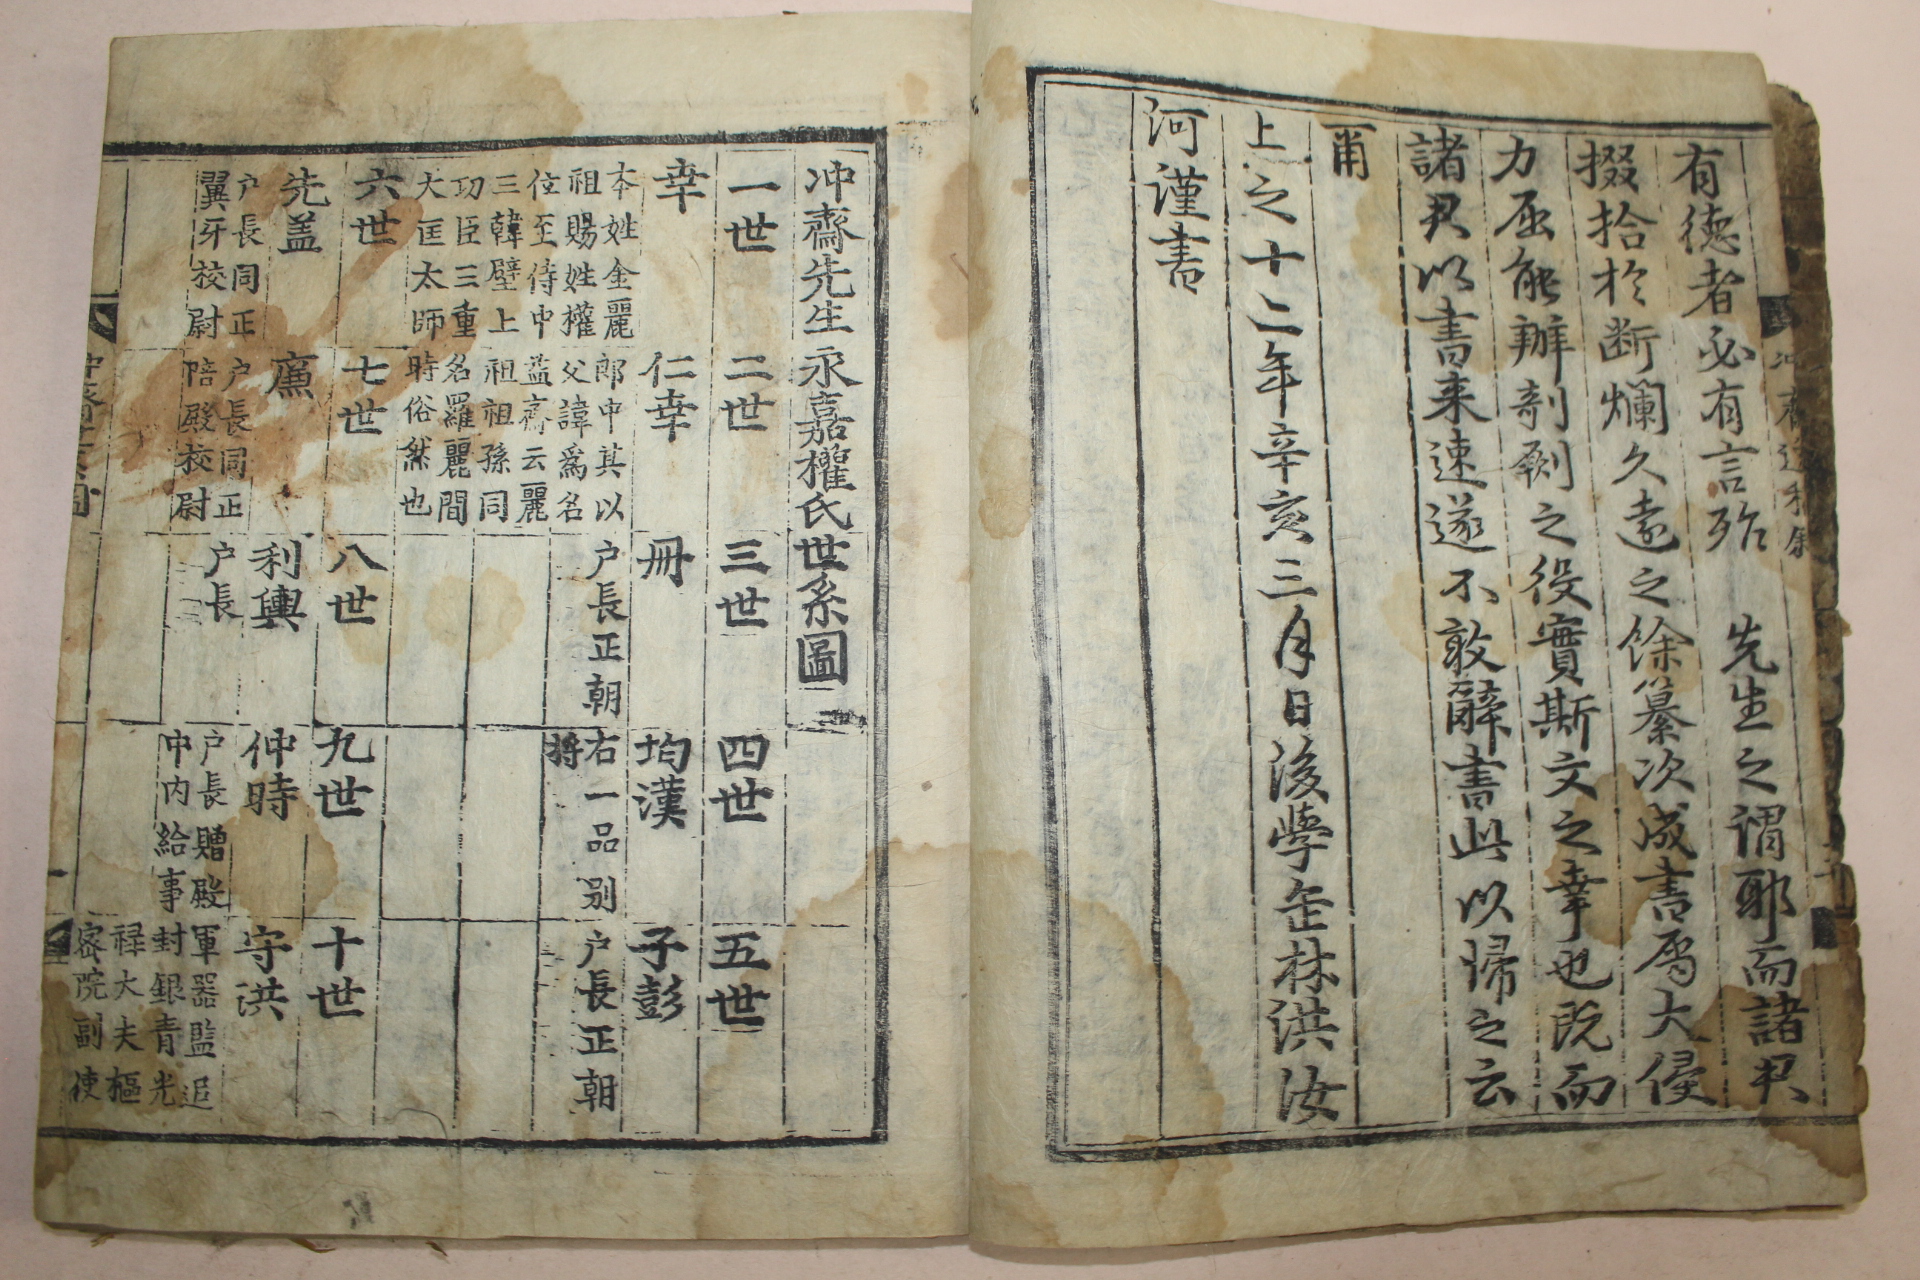 有德者必有言殆 先生之謂耶而諸君
掇拾於斷爛久遠之餘纂次成書屬大侵
力屈能辦剞劂之役實斯文之幸也旣而
諸君以書来速遂不敢辭書此以歸之云
甭
上之十二年辛亥三月日後學缶林洪汝
河謹書
冲齋先生永嘉權氏世系圖
一世
二世
三世
四世
五世
幸
本姓金麗
祖賜姓權
位至侍中
三韓壁上
功臣三重
大匡太師
仁幸
郎中其以
父諱爲名
益齋云麗
祖祖孫同
名羅麗間
時俗然也
冊
户長正朝
均漢
右一品别
將
子彭
户長正朝
六世
七世
八世
九世
十世
先盖
户長同正
翼牙校尉
廉
户長同正
陪殿校尉
利輿
户長
仲時
户長贈殿
中内給事
守洪
軍器監追
封銀青光
禄大夫樞
密院副使